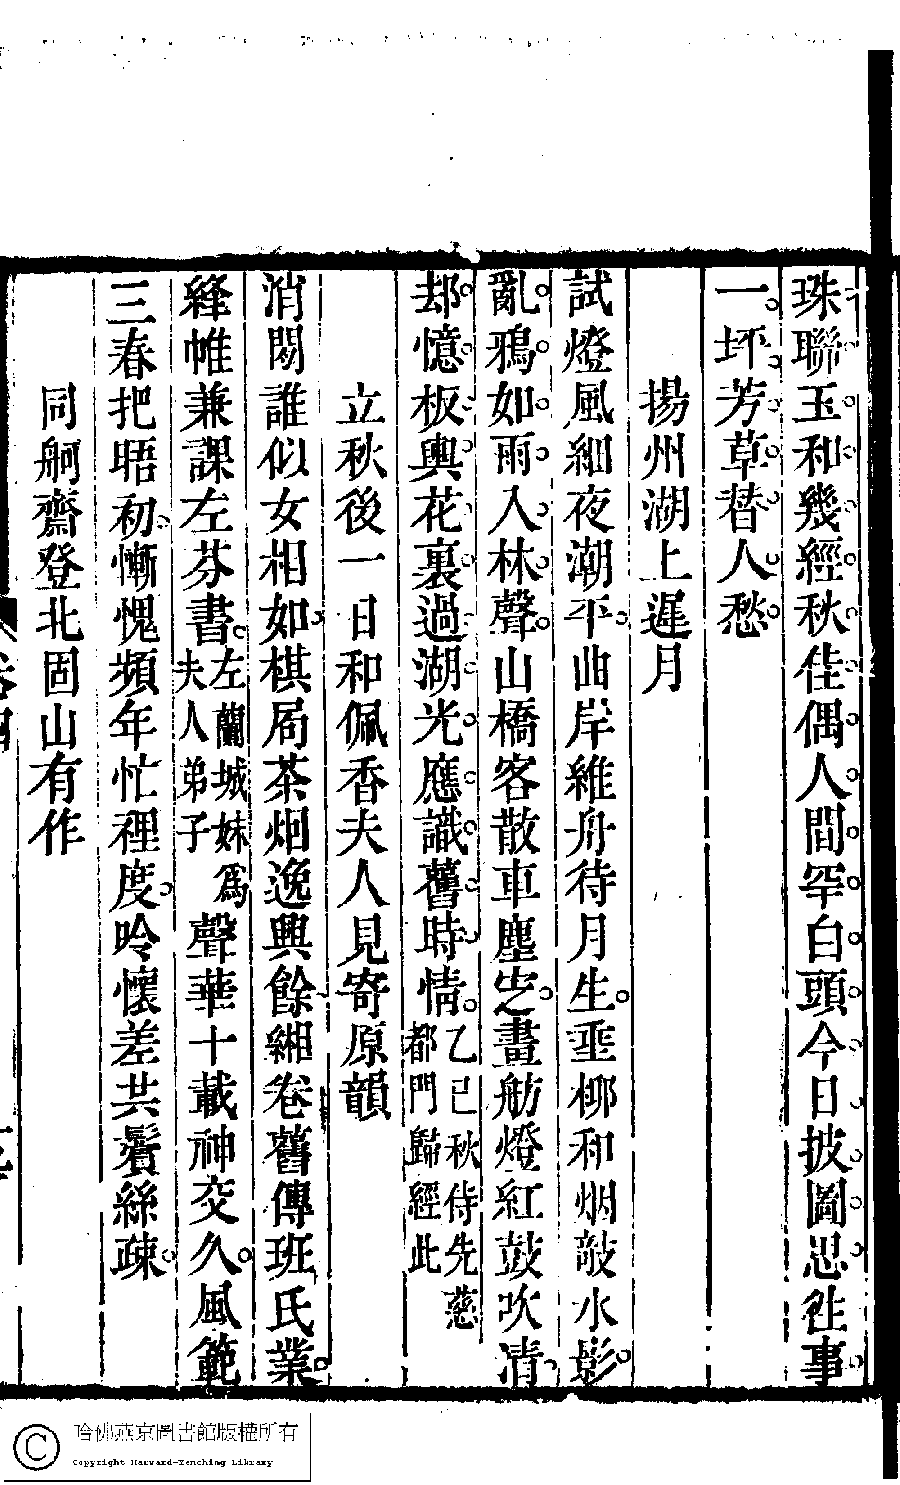 珠聯玉和幾經秋佳偶人間罕白頭今日披圖思往事
一坏芳草替人愁
揚州湖上遲月
試燈風細夜潮平曲岸維舟待月生垂柳和烟敲水影
亂鴉如雨入林聲山橋客散車塵定畫舫燈紅鼓吹清
却憶板輿花裏過湖光應識舊時情乙巳秋侍先慈都門歸經此
立秋後一日和佩香夫人見寄原韻
消閒誰似女相如棋局茶烟逸興餘緗卷舊傳班氏業
絳帷兼課左芬書左蘭城妹爲夫人弟子聲華十載神交久風範
三春把晤初慚愧頻年忙裡度吟懷差共鬢絲疎
同舸齋登北固山有作
哈佛燕京圖書館版權所有
Copyright Harvard-Yenching Library